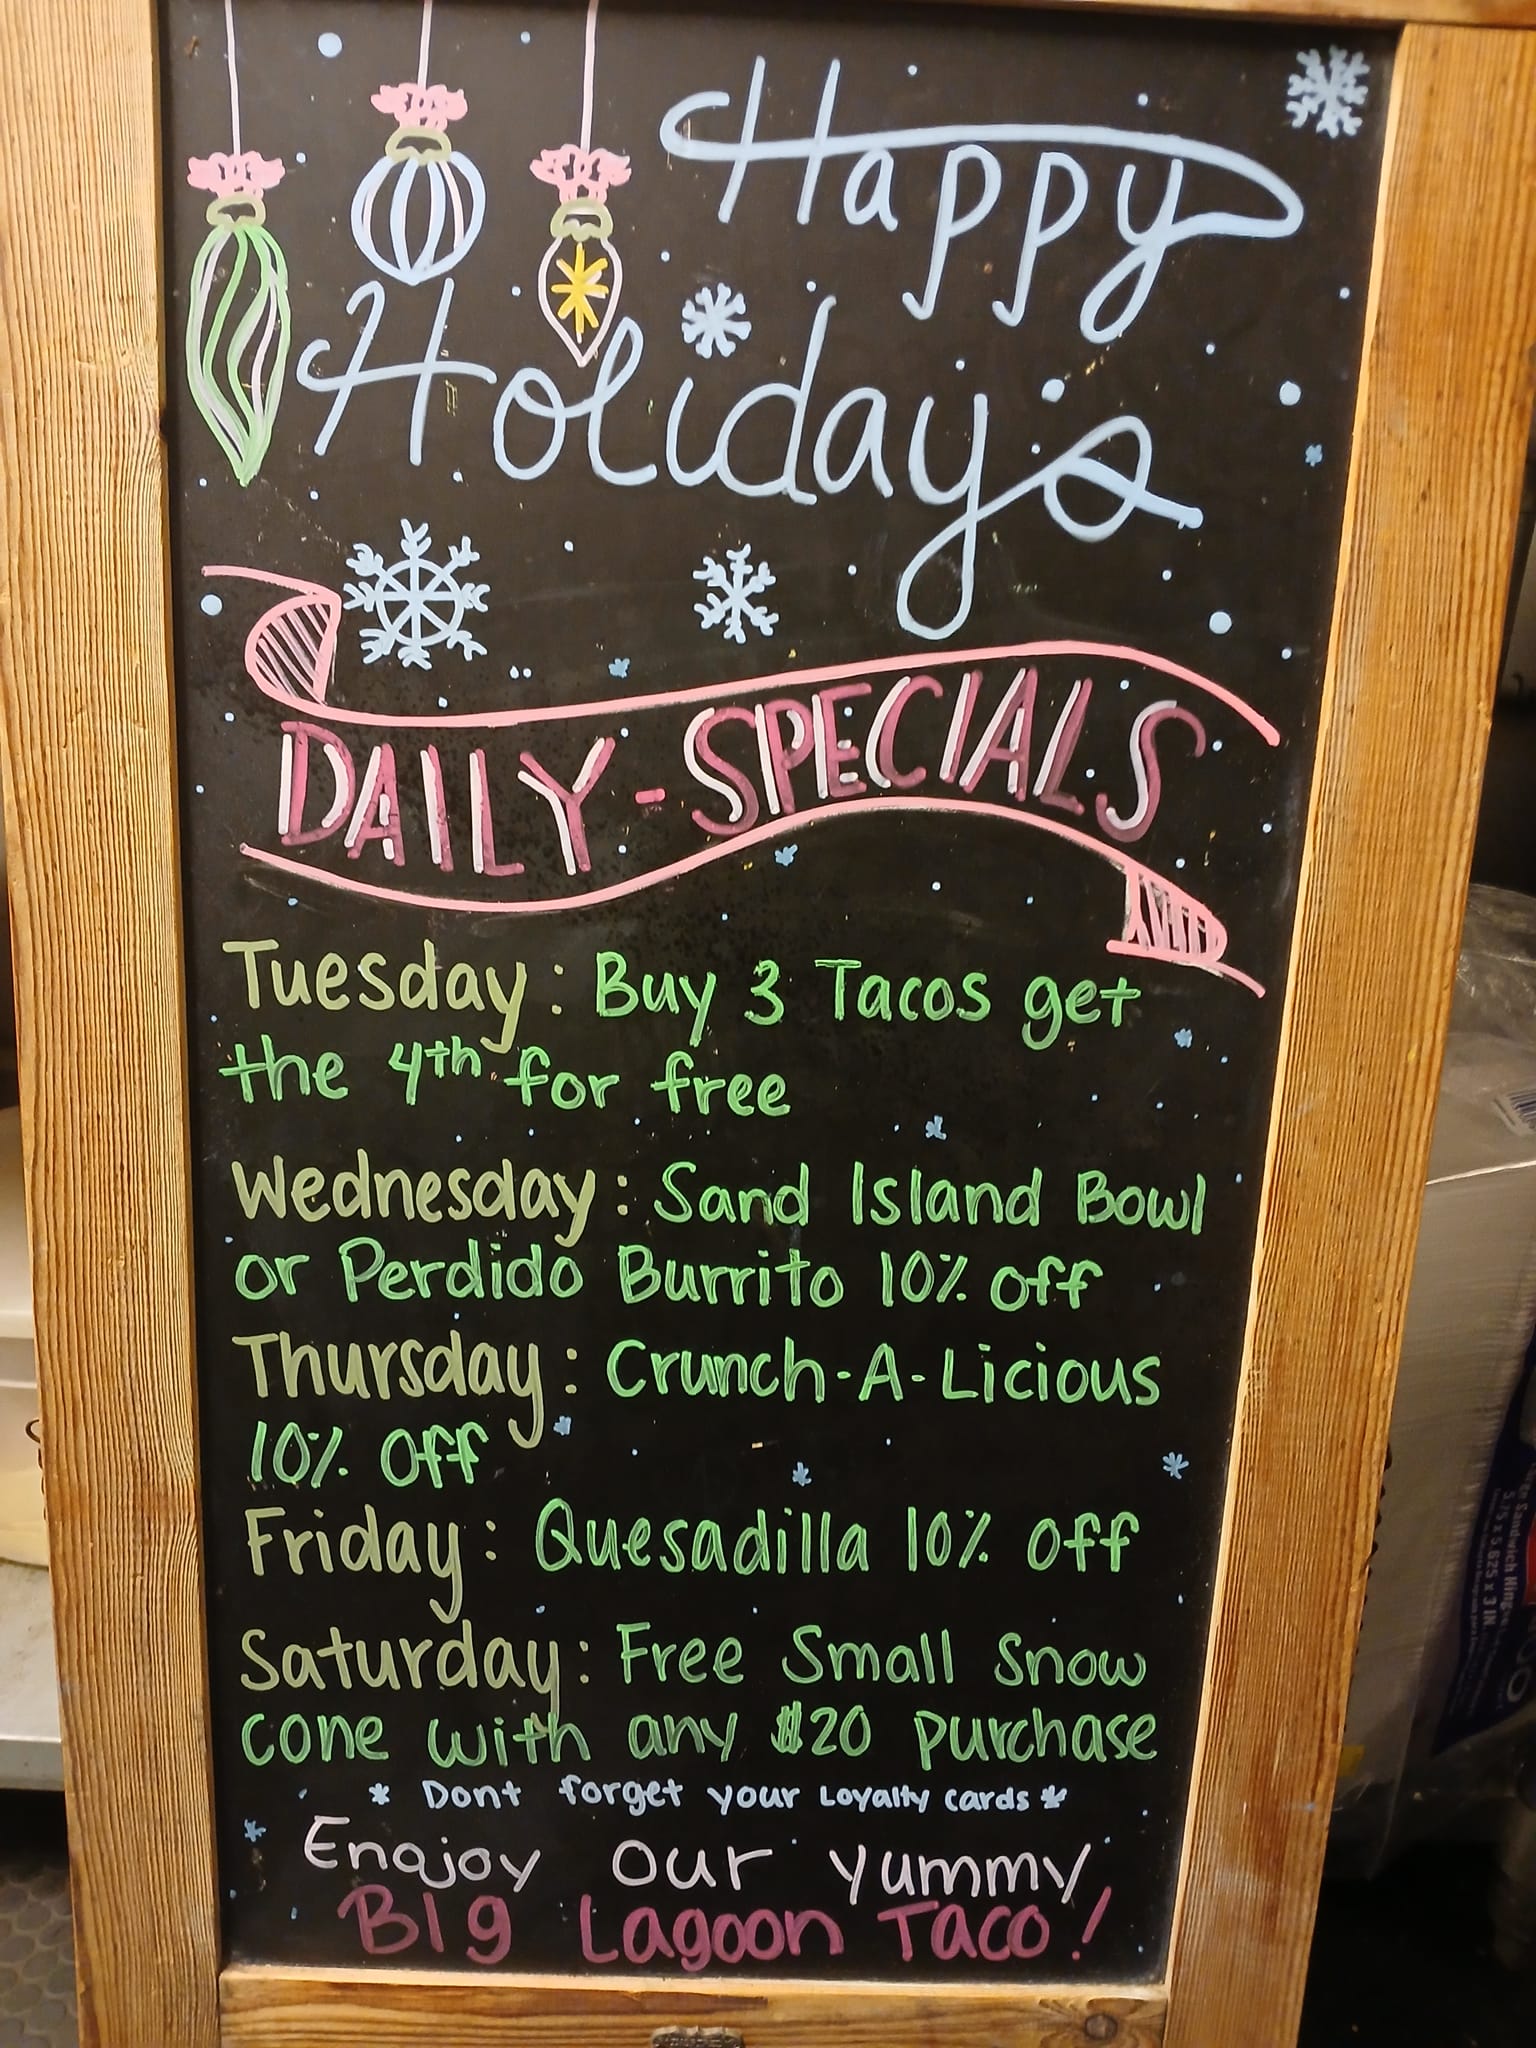 Happy
Holidays
DAILY-SPECIALS
Tuesday: Buy 3 Tacos get
the 4th for free
Wednesday: Sand Island Bowl
or Perdido Burrito 10% off
Thursday: Crunch-A-Licious
10% Off
Friday: Quesadilla 10% off
Saturday: Free Small Snow
cone with any $20 purchase
* Dont forget your Loyalty cards *
Enojoy our yummy
BIg Lagoon Taco!
5.75 x 5.625 x 3 IN